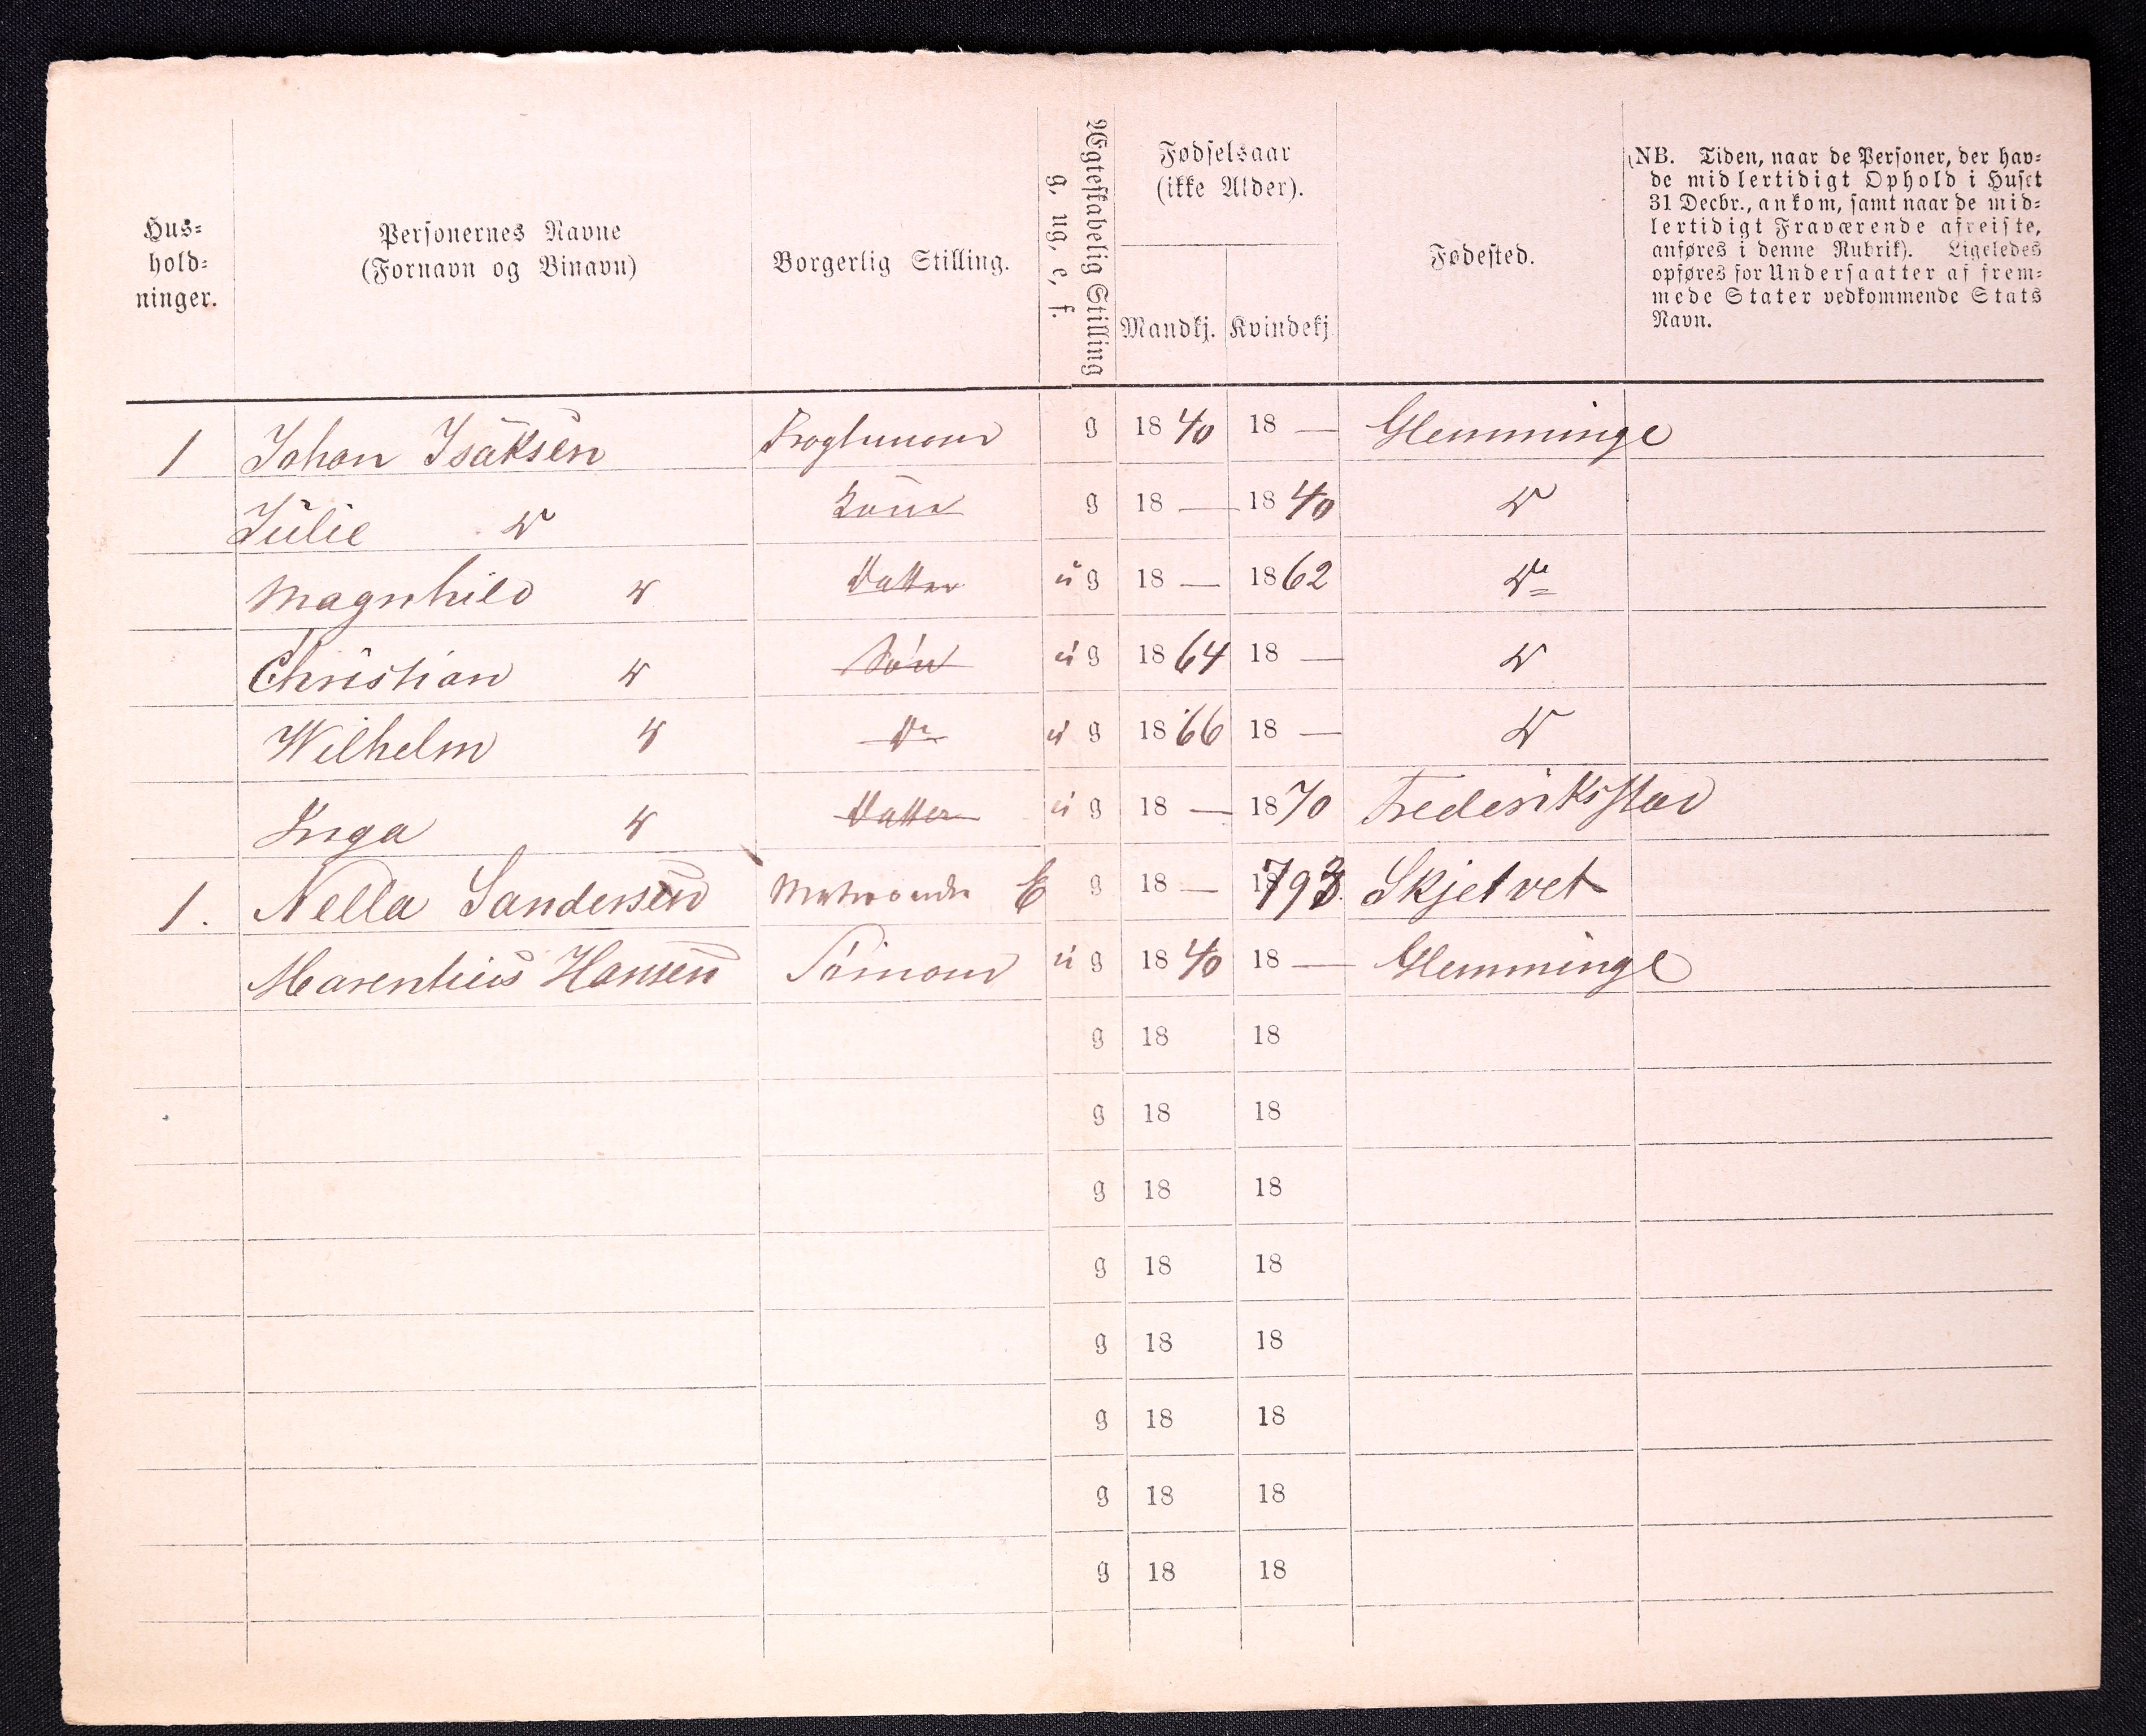 Hus-
hold-
ninger.
Personernes Navne
(Fornavn og Binavn)
Borgerlig Stilling.
Ægteskabelig Stilling
g, ug, e, f.
Fødselsaar
(ikke Alder).
Mandkj. Kvindekj.
Fødested.
(NB. Tiden, naar de Personer, der hav-
de midlertidigt Ophold i Huset
31 Decbr., ankom, samt naar de mid-
lertidigt Fraværende afreiste,
anføres i denne Rubrik). Ligeledes
opføres for Undersaatter af frem-
mede Stater vedkommende Stats
Navn.
1 Johan Isaksen g 1840 18 — Glemminge
Julie Do Kone g 18 — 1840 Do
Magnhild Do Datter ug 18 — 1862 Do
Christian Do Søn ug 1864 18 — Do
Wilhelm Do Do ug 1866 18 — Do
Inga Do Datter ug 18 — 1870 Frederiksstad
1. Nella Sandersen E g 18 — 1793 Skjelvet
Marentius Hansen Sømand ug 1840 18 — Glemminge
g 18 18
g 18 18
g 18 18
g 18 18
g 18 18
g 18 18
g 18 18
g 18 18